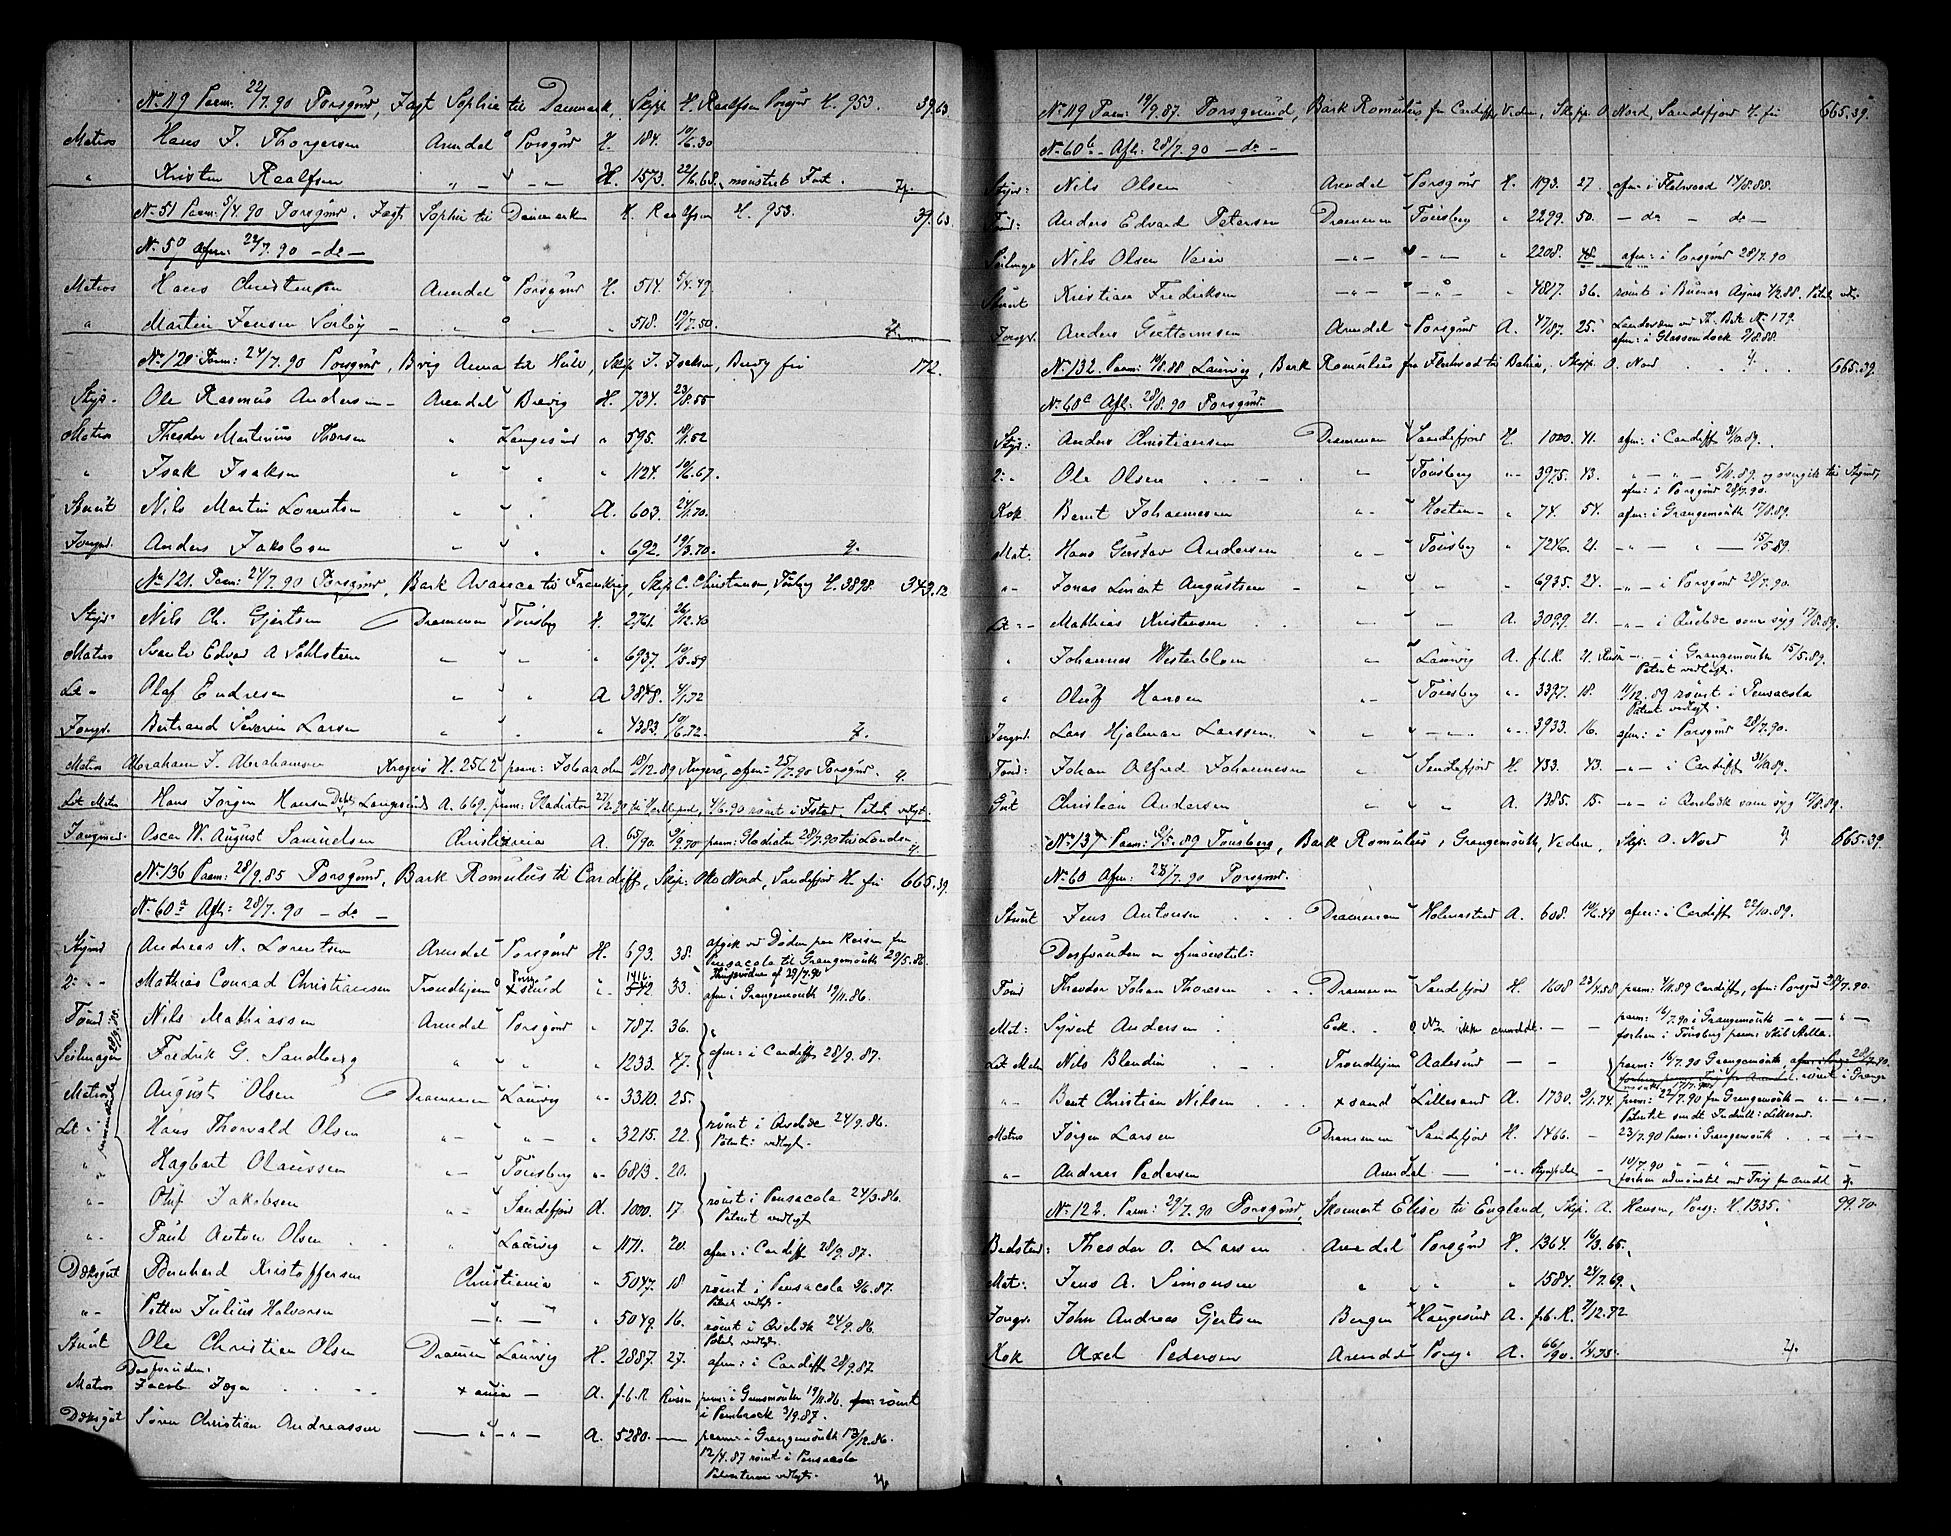 No 119 Paam: 22/7.90 Porsgrund, Jagt Sophie til Danmark, Skip. H. Raalfsen Porsgrd H. 953. 39,63
Matros Hans J. Thorgersen Arendal Porsgrd H. 184. 10/6.30
" Kristen Raalfsen " - " - - H. 1573. 22/6.68. mønstret Fart.
No 51 Paam: 5/4.90 Porsgrd. Jagt Sophie til Danmark H. Raalfsen H. 953. 39.63
No 50 Afm: 22/7.90 - do -
Matros Hans Christensen Arendal Porsgrund H. 514. 5/4.49
" Martin Jensen Sorby - " " - " 518. 9/7.50.
No 120 Paam: 24/7.90 Porsgrund, Brig Anna til Hull, Skip J. Isaksen, Brevig fri 172.
Styr- Ole Rasmus Andersen - Arendal Brevig H. 734. 23/8.55
Matros Theodor Martinius Thorsen " Langesund " 595. 10/1.52
" Isak Isaksen " " " 1124. 10/6.67.
Stuert Nils Martin Lorentsen " " A. 603. 24/1.70.
Jongmd. Anders Jakobsen " " " 692. 19/3.70.
No 121. Paam: 24/7.90 Porsgrund, Bark Avance til Frankrig, Skip C. Christensen, Tønsberg H. 3898. 343.12
Styr- Nils Ch. Gjertsen Drammen Tønsbg H. 2761. 26/12.40
Matros Svante Edvar A Sahlsteen " " " 6937. 10/5.59
Let " Olaf Endresen " " A 3848. 4/1.72
Jongs. Bertrand Severin Larsen " " " 4383. 10/6.72.
Matros Abraham J. Abrahamsen Kragerø H. 2562 paam: Johaaden 18/12.89 Kragerø, afm: 25/7.90 Porsgrd.
Let Matr Hans Jørgen Hansen Langesund A. 669. paam: Gladiator 27/2.90 til Hartlepool, 4/6.90 rømt i Ystad. Patent vedlagt.
Jungmd. Oscar W. August Samuelsen Christiania A. 65/90. 9/9.70 paam: Gladiator 28/7.90 til London
No 136 Paam: 28/9.85 Porsgrund, Bark Romulus til Cardiff, Skip: Otto Nord, Sandefjord H. fri 665.39.
No 60a Afm: 28/7.90 - do -
Stymd Andreas N. Lorentsen Arendal Porsgrund H. 693. 38. afgik ved Døden paa Reisen fra
Pensacola til Grangemouth 29/5.86.
2: " - Mathias Conrad Christiansen Trondhjem 1416. 512 33. afm i Grangemouth 19/11.86.
Tømd Nils Mathiassen Arendal Porsgrund " 787. 36.
Seilmager Fredrik G. Sandberg " " " 1233. 47. afm: i Cardiff 28/9.87.
Matros August Olsen Drammen Laurvig " 3310. 25.
Let " Hans Thorvald Olsen " - " - " 3215. 22. rømt i Avebæc 24/9.86.
Patent: vedlagt.
" Hagbart Olaussen " - Tønsberg " 6813. 20.
" - Oluf Jakobsen " - Sandefjord A. 1000. 17. rømt i Pensacola 24/3.86.
Patent vedlagt
" - Paul Anton Olsen " Laurvig " 1171. 20. afm: i Cardiff 28/9.87.
Dæksgut Bernhard Kristoffersen Christiania " 5047. 18 rømt i Pensacola 9/6.87.
Patent vedlagt.
" - Petter Julius Halvorsen - " - " 5049. 16. rømt i Avebæk 24/9.86
Patent vedlagt.
Stuert Ole Christian Olsen Drammen Laurvig H. 2887. 27. afm: i Cardiff 28/9.87
Desforuden:
Matros Jacob Jæger xania - A. f.b.R Russen, paam: i Grangemouth 19/11.86. rømt
i Pembrock 3/9.87.
Dæksgut Søren Christian Andreassen - " - " - A. 5280. - paam: i Grangemouth 13/12.86.
12/4.87 rømt i Pensacola
Patenterne vedlagt.
No 119 Paam: 19/9.87. Porsgrund, Bark Romulus fra Cardiff, Videre, Skipp O. Nord, Sandefjord H. fri 665.39.
No 60b - Afm: 28/7.90 - do -
Styr: Nils Olsen Arendal Porsgrund H. 1193. 27. afm: i Fleetwood 17/8.88.
Tømd: Anders Edvard Petersen Drammen Tønsberg " 2299. 50. - do - do -
Seilmagr Nils Olsen Veier - " - " - " - " 2208. 48. afm: i Porsgrund 28/7.90
Stuert Kristian Frederiksen - " - - " - " 4817. 36. rømt i Buenos Ayres 4/2.88. Patent vdl.
Jongs. Anders Guttormsen Arendal Porsgrund A. 47/87. 25. Landsvæsen ved Th. Bek No 179.
afm: i Glassondock 9/8.88.
No 132. Paam: 19/8.88 Laurvig, Bark Romulus fra Fleetwood til Bahia, Skipp. O. Nord 665.39.
No 60c Afm: 28/8.90 Porsgrund.
Styr: Anders Christiansen Drammen Sandefjord H. 1000. 41. afm: i Cardiff 31/10.89.
2: " Ole Olsen " Tønsberg " - 3975. 43. " - " - 5/11.89. og overgik til Styrmd,
afm: i Porsgrund 28/7.90.
Kok Bernt Johannesen " - Horten - " 74. 54. afm: i Grangemouth 17/8.89.
Mat. Hans Gustav Andersen " - Tønsberg " 7246. 21. " - " - 15/5.89.
" - Jonas Linart Augustsen - " " " 6935. 24. - " - i Porsgrund 28/7.90.
Let - Mathias Kristensen " - " A. 3099. 21. - " - i Avebæc som syg 17/8.89.
" Johannes Westerblom " Laurvig A. f.b.R. 21. Russ - " - i Grangemouth 15/5.89.
Patent vedlagt.
" Oluf Hansen " - Tønsberg " 3397. 18. 11/12.89 rømt i Pensacola
Patent vedlagt.
Jongmd. Lars Hjalmar Larssen. " - " - " 3933. 16. afm: i Porsgrund 28/7.90.
Tømd: Johan Alfred Johannesen " Sandefjord H. 433. 43. - " - i Cardiff 31/10.89.
Gut Christian Andersen " " A. 1385. 15. - " - i Avebæk som syg 17/8.89.
No 137 Paam: 9/5.89 Tønsberg, Bark Romulus, Grangemouth, Videre, Skip. O. Nord 665.39.
No 60 Afm: 28/7.90 Porsgrund.
Stuert Jens Antonsen Drammen Holmestrand A. 608. 19/6.49 afm: i Cardiff 22/10.89.
Desforuden er afmønstret:
Tømd Theodor Johan Thoresen Drammen Sandefjord H. 1608 23/4.58 paam: 4/11.89 Cardiff, afm: Porsgrd 28/7.90.
Mat: Syvert Andersen Eek. No ikke anmeldt. - - paam: 16/7.90 i Grangemouth - " - " -
forhen i Tønsberg paam: Skib Stella.
Let Matr Nils Blandin Trondhjem Aalesund - - paam: 16/7.90 Grangemouth,
rømt i Grangemouth 17/7.90
" - Bent Christian Nilsen xsand Lillesand A. 1730. 9/1.74. paam: 22/7.90 fra Grangemouth - " - " -
Patentet sendt Indrull: Lillesand.
Matros Jørgen Larsen Drammen Sandefjord H. 1466. - 23/7.90 Paam: i Grangemouth " - " -
" - Andreas Pedersen Arendal - " - - 10/7.90 " " " -
forhen udmønstret med Frij fra Arendal
No 122. Paam: 29/7.90 Porsgrund, Skonnert Elise til England, Skip. A. Hansen, Porsg: H. 1335. 99.70.
Bedstmd: Theodor O. Larsen Arendal Porsgrund H. 1364. 16/3.65.
Mat: Jens A. Simonsen " " " 1584. 24/7.69.
Jongs. John Andreas Gjertsen Bergen Haugesund A. f.b.R. 7/12.72
Kok Axel Pedersen Arendal Porsgr A. 66/90. 1/4.75.